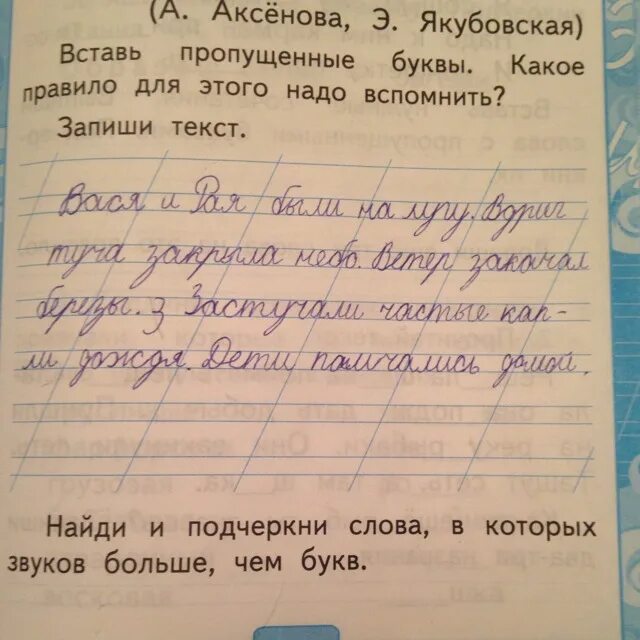 (А. Аксёнова, Э. Якубовская)
Вставь пропущенные буквы. Какое
правило для этого надо вспомнить?
Запиши текст.
Вася и Рая были на лугу. Вдруг
туча закрыла небо. Ветер закачал
березы. З Застучали частые кап-
ли дождя. Дети памчались домой.
Найди и подчеркни слова, в которых
звуков больше, чем букв.